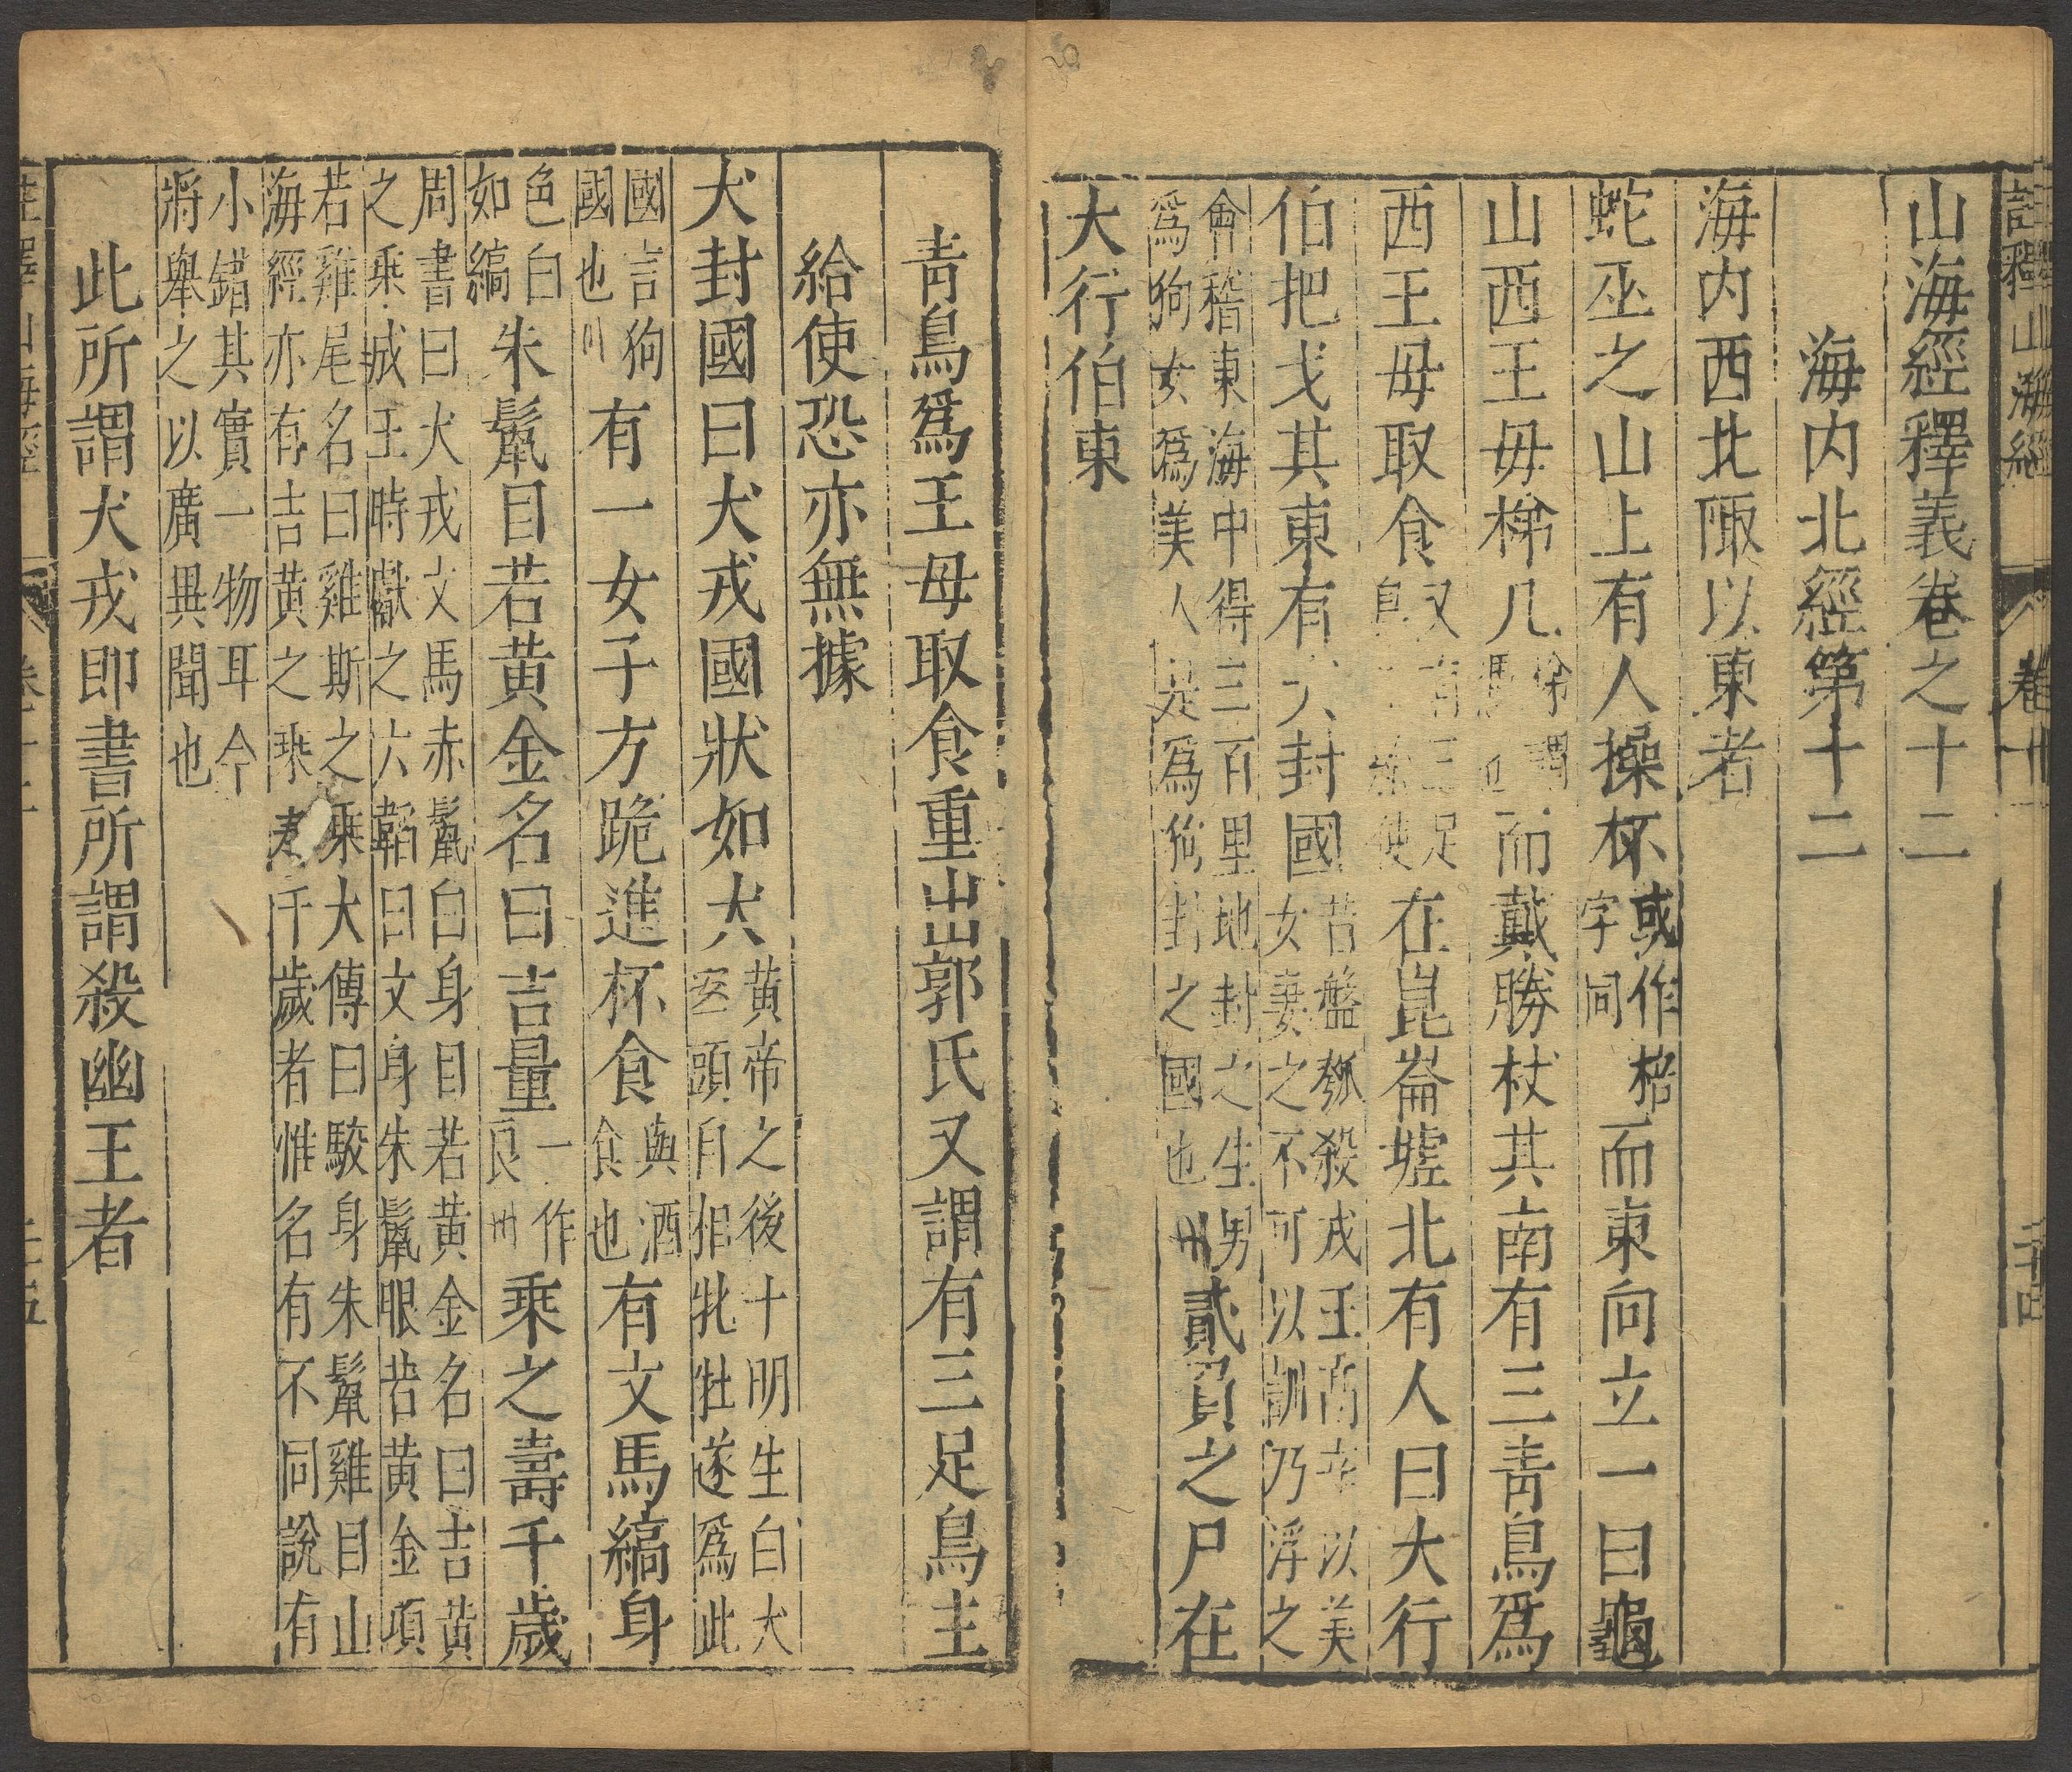 註釋山海經 卷十 二十四
山海經釋義卷之十二
海内北經第十二
海内西北陬以東者
蛇巫之山上有人操杯或作棓字同而東向立一曰龜
山西王母梯几梯謂馮也而戴勝杖其南有三青鳥爲
西王母取食又有三足鳥主給使在崑崙墟北有人曰大行
伯把戈其東有犬封國昔盤瓠殺戎王高辛以美女妻之不可以訓乃浮之
會稽東海中得三百里地封之生男爲狗女爲美人是爲狗封之國也
貳負之尸在
大行伯東
青鳥爲王母取食重出郭氏又謂有三足鳥主
給使恐亦無據
犬封國曰犬戎國狀如犬黄帝之後十明生白犬二頭自相牝牡遂爲此
國言狗國也有一女子方跪進杯食與酒食也有文馬縞身
色白如縞朱鬣目若黄金名曰吉量一作良乘之壽千歲
周書曰犬戎文馬赤鬣白身目若黄金名曰吉黄
之乘成王時獻之六韜曰文身朱鬣眼若黄金項
若雞尾名曰雞斯之乘大傳曰駮身朱鬣雞目山
海經亦有吉黄之乘壽千歲者惟名有不同說有
小錯其實一物耳今
將舉之以廣異聞也
此所謂犬戎即書所謂殺幽王者
註釋山海經 卷十二 二十五